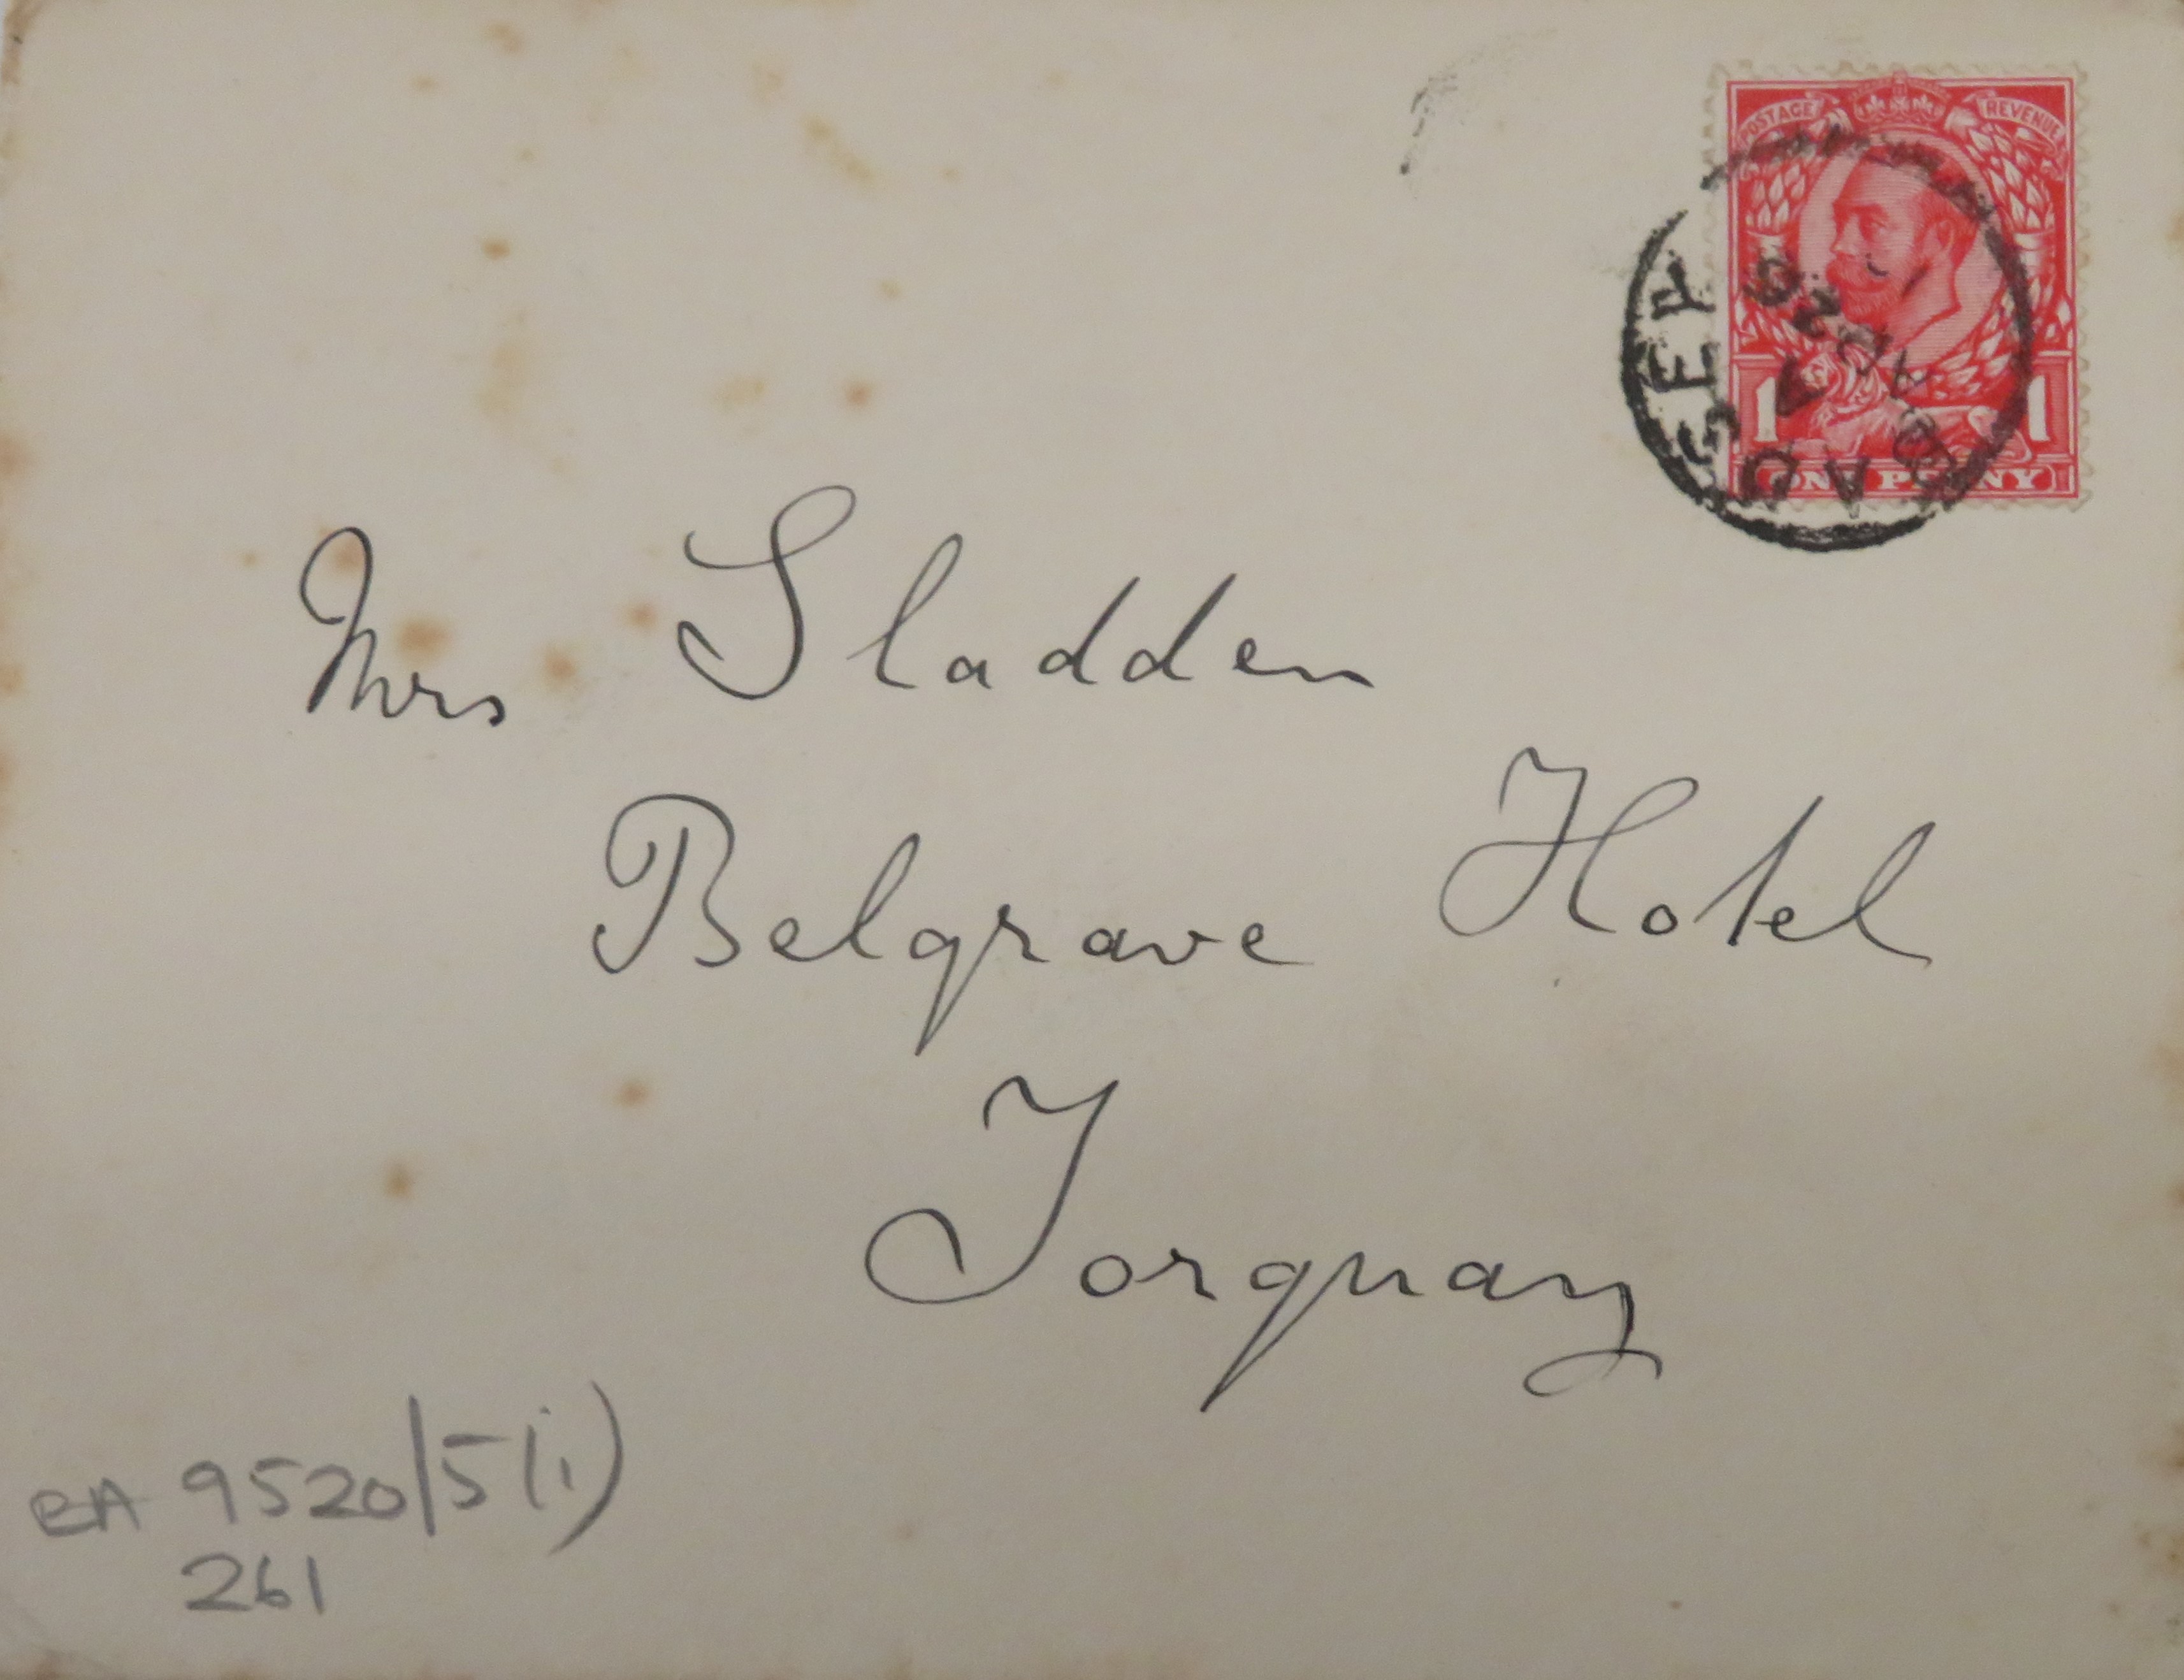 POSTAGE REVENUE
1 1
ONE PENNY
BADSEY
A
26
Mrs Sladden
Belgrave Hotel
Torquay
BA 9520/5(i)
261